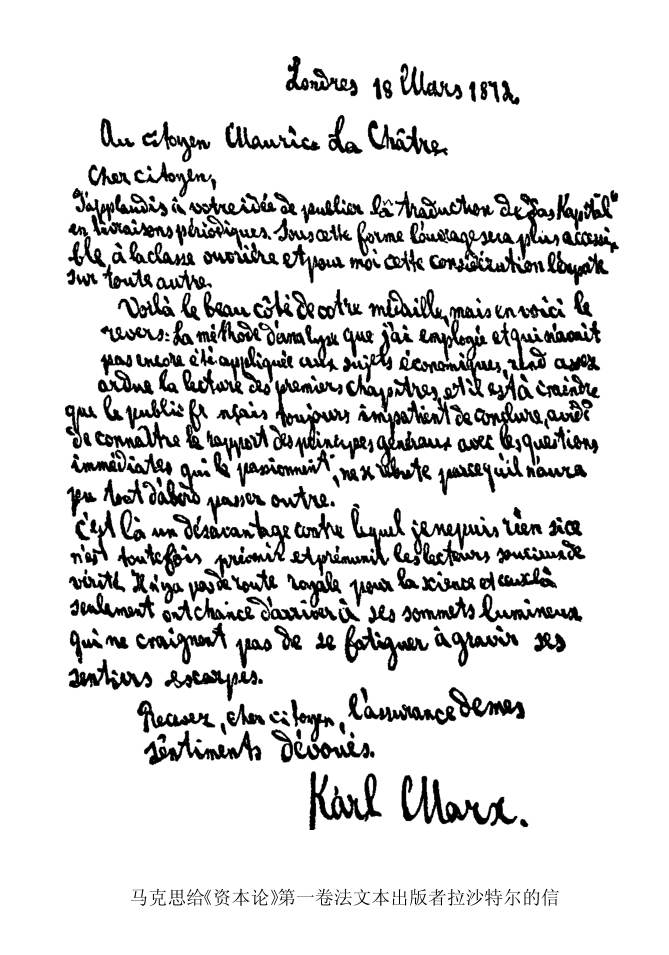 Londres 18 Mars 1872.
Au citoyen Maurice La Châtre.
Cher citoyen,
J'applaudis à votre idée de publier la traduction de „Das Kapital“
en livraisons périodiques. Sous cette forme l'ouvrage sera plus accessi-
ble à la classe ouvrière et pour moi cette considération l'emporte
sur toute autre.
Voilà le beau côté de votre médaille, mais en voici le
revers: La méthode d'analyse que j'ai employée et qui n'avait
pas encore été appliquée aux sujets économiques, rend assez
ardue la lecture des premiers chapitres, et il est à craindre
que le public français toujours impatient de conclure, avide
de connaître le rapport des principes généraux avec les questions
immédiates qui le passionnent, ne se rebute parcequ'il n'aura
pu tout d'abord passer outre.
C'est là un désavantage contre lequel je ne puis rien si ce
n'est toutefois prévenir et prémunir les lecteurs soucieux de
vérité. Il n'y a pas de route royale pour la science et ceux là
seulement ont chance d'arriver à ses sommets lumineux
qui ne craignent pas de se fatiguer à gravir ses
sentiers escarpés.
Recevez, cher citoyen, l'assurance de mes
sentiments dévoués.
Karl Marx.
马克思给《资本论》第一卷法文本出版者拉沙特尔的信